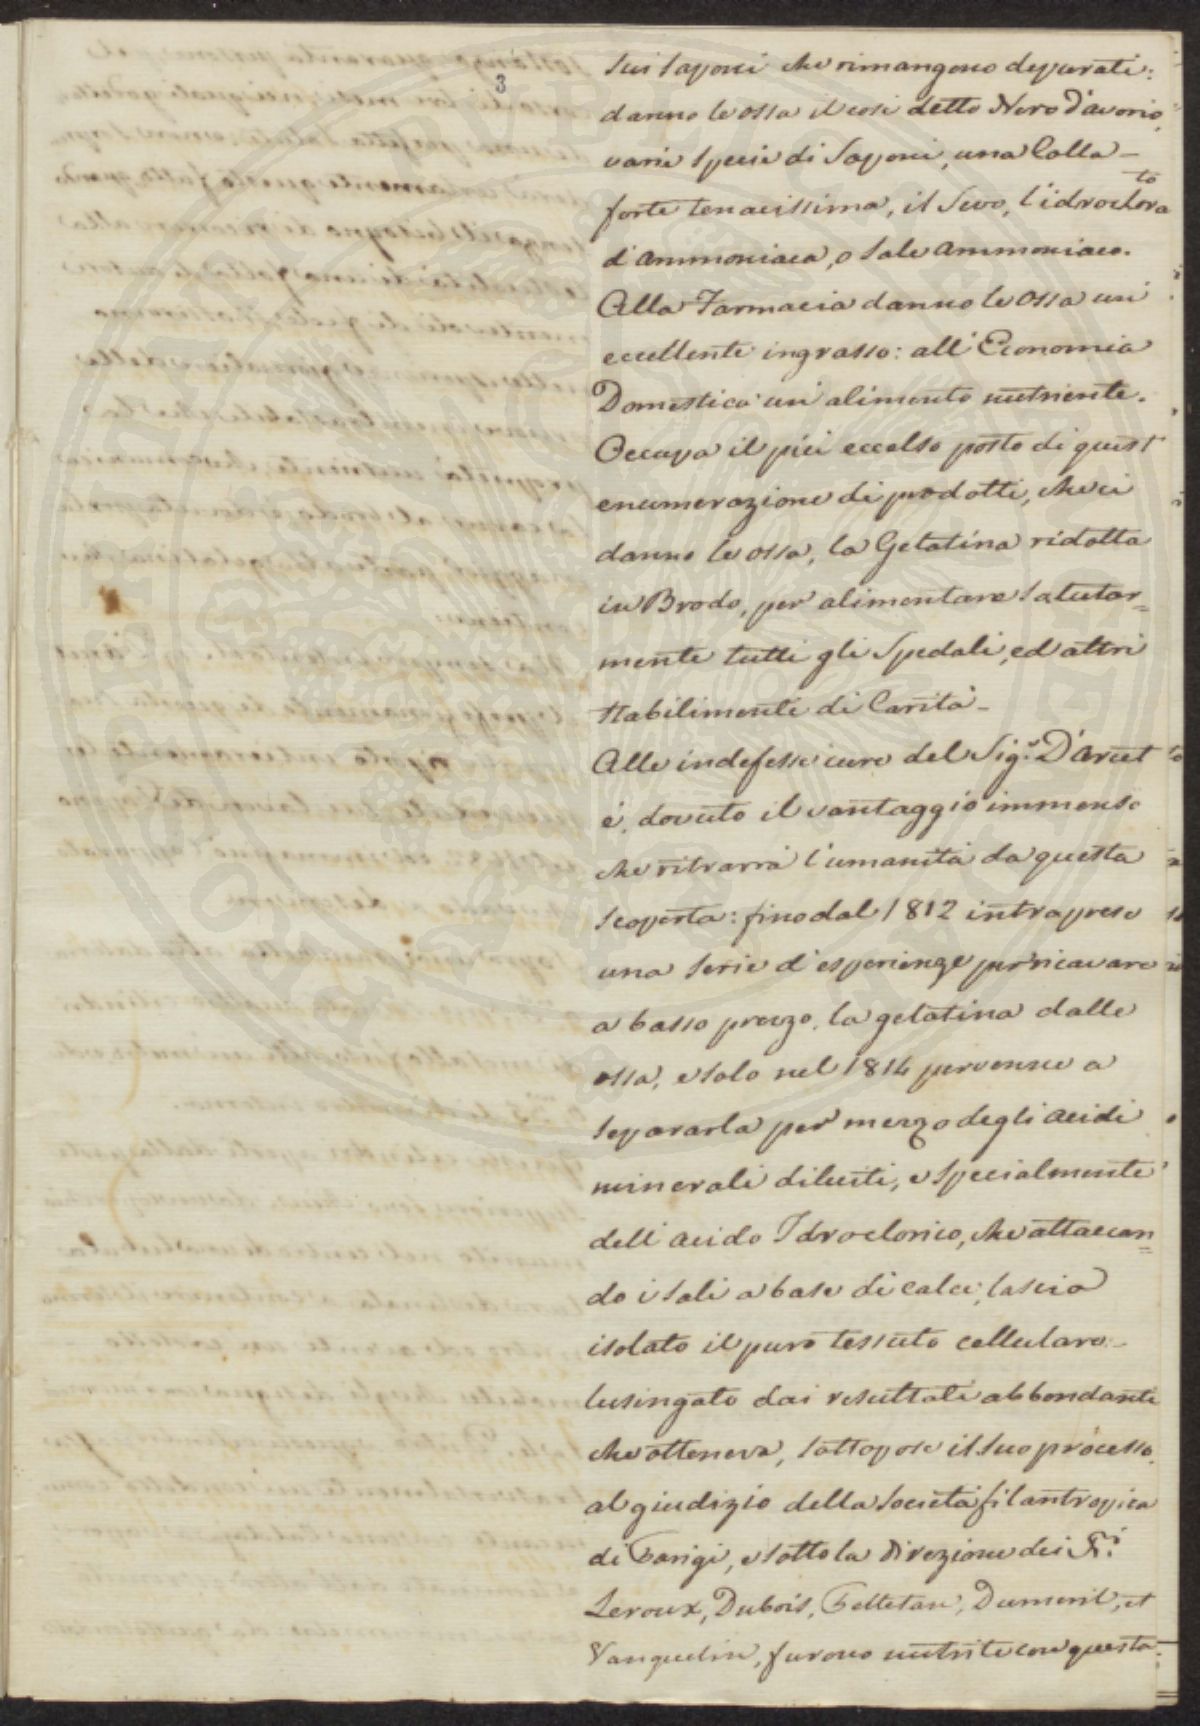 3
sui saponi che rimangono depurati:
danno le ossa il così detto Nero d'avorio,
varie specie di Saponi, una Colla-
forte tenacissima, il Sevo, l'idroclorato
d'ammoniaca, o Sale ammoniaco.
Alla Farmacia danno le ossa un'
eccellente ingrasso: all'Economia
Domestica un'alimento nutriente.
Occupa il più eccelso posto di quest'
enumerazione di prodotti, che ci
danno le ossa, la Gelatina ridotta
in Brodo, per alimentare salutar=
mente tutti gli Spedali, ed altri
stabilimenti di Carità-
Alle indefesse cure del Sig.r D'arcet
é dovuto il vantaggio immenso
che ritrarrà l'umanità da questa
scoperta: fino dal 1812 intraprese
una serie d'esperienze per ricavare
a basso prezzo, la gelatina dalle
ossa, e solo nel 1814 pervenne a
separarla per mezzo degli acidi
minerali diluiti, e specialmente
dell'acido Idroclorico, che attaccan=
do i sali a base di calce, lascia
isolato il puro tessuto cellulare-
lusingato dai resultati abbondanti
che otteneva, sottopose il suo processo,
al giudizio della Società filantropica
di Parigi, e sotto la direzione dei SS.ri
Leroux, Dubois, Pelletan, Dumeril, et
Vanquelin, furono nutrite con questa